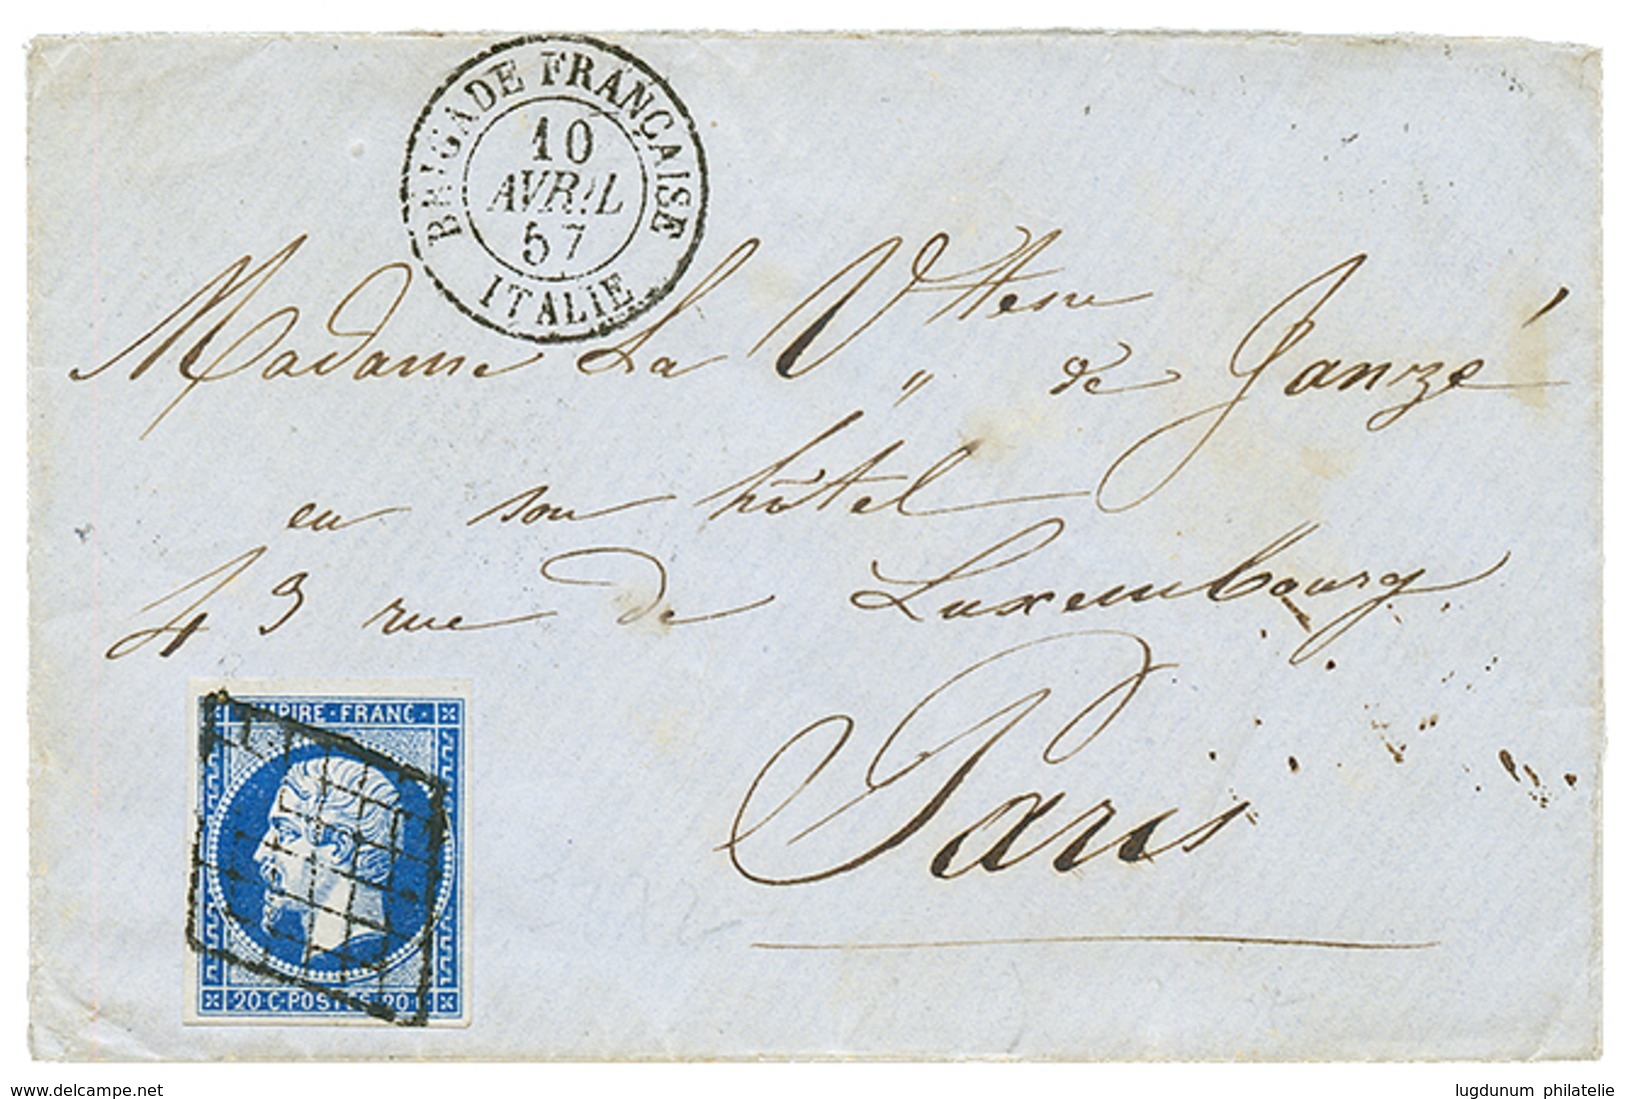 BRIGADE FRANÇAISE
10
AVRIL
57
ITALIE
Madame La Vttesse de Janzé
en son hôtel
43 rue de Luxembourg
Paris
EMPIRE · FRANC ·
20·C·POSTES·20·C
www.delcampe.net
lugdunum philatelie